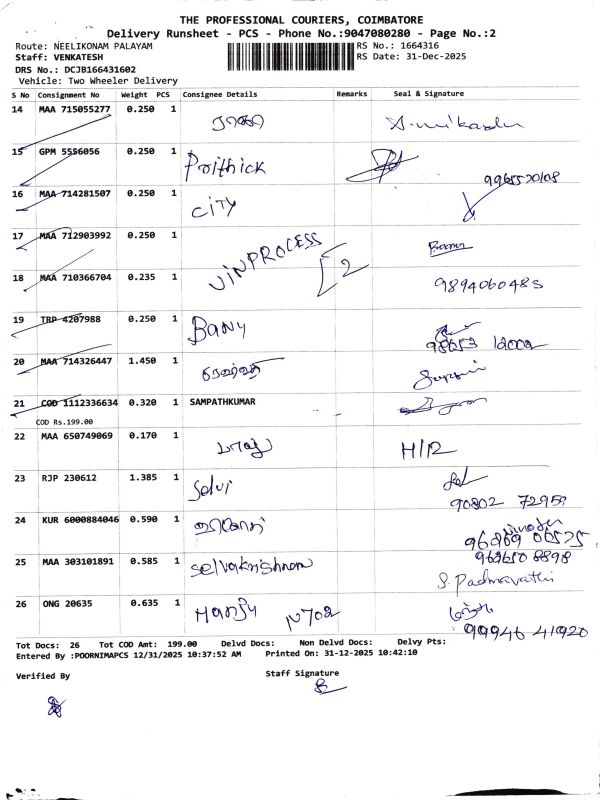 THE PROFESSIONAL COURIERS, COIMBATORE
Delivery Runsheet - PCS - Phone No.:9047080280 - Page No.:2
Route: NEELIKONAM PALAYAM
RS No.: 1664316
Staff: VENKATESH
RS Date: 31-Dec-2025
DRS No.: DCJB166431602
Vehicle: Two Wheeler Delivery
S No Consignment No Weight PCS Consignee Details Remarks Seal & Signature
14 MAA 715055277 0.250 1
15 GPM 5556056 0.250 1 Prithick
16 MAA 714281507 0.250 1 CITY
17 MAA 712903992 0.250 1 VINPROCESS 2
18 MAA 710366704 0.235 1 9894060483
19 TRP 4207988 0.250 1 Bany
20 MAA 714326447 1.450 1
21 COD 1112336634 0.320 1 SAMPATHKUMAR
COD Rs.199.00
22 MAA 650749069 0.170 1 H/R
23 RJP 230612 1.385 1 Selvi
90802 72959
24 KUR 6000884046 0.590 1
96269 06525
25 MAA 303101891 0.585 1 Selvakrishnan 962650 8898
S. Padmavathi
26 ONG 20635 0.635 1 Manju N702
99946 41920
Tot Docs: 26 Tot COD Amt: 199.00 Delvd Docs: Non Delvd Docs: Delvy Pts:
Entered By :POORNIMAPCS 12/31/2025 10:37:52 AM Printed On: 31-12-2025 10:42:10
Verified By
Staff Signature